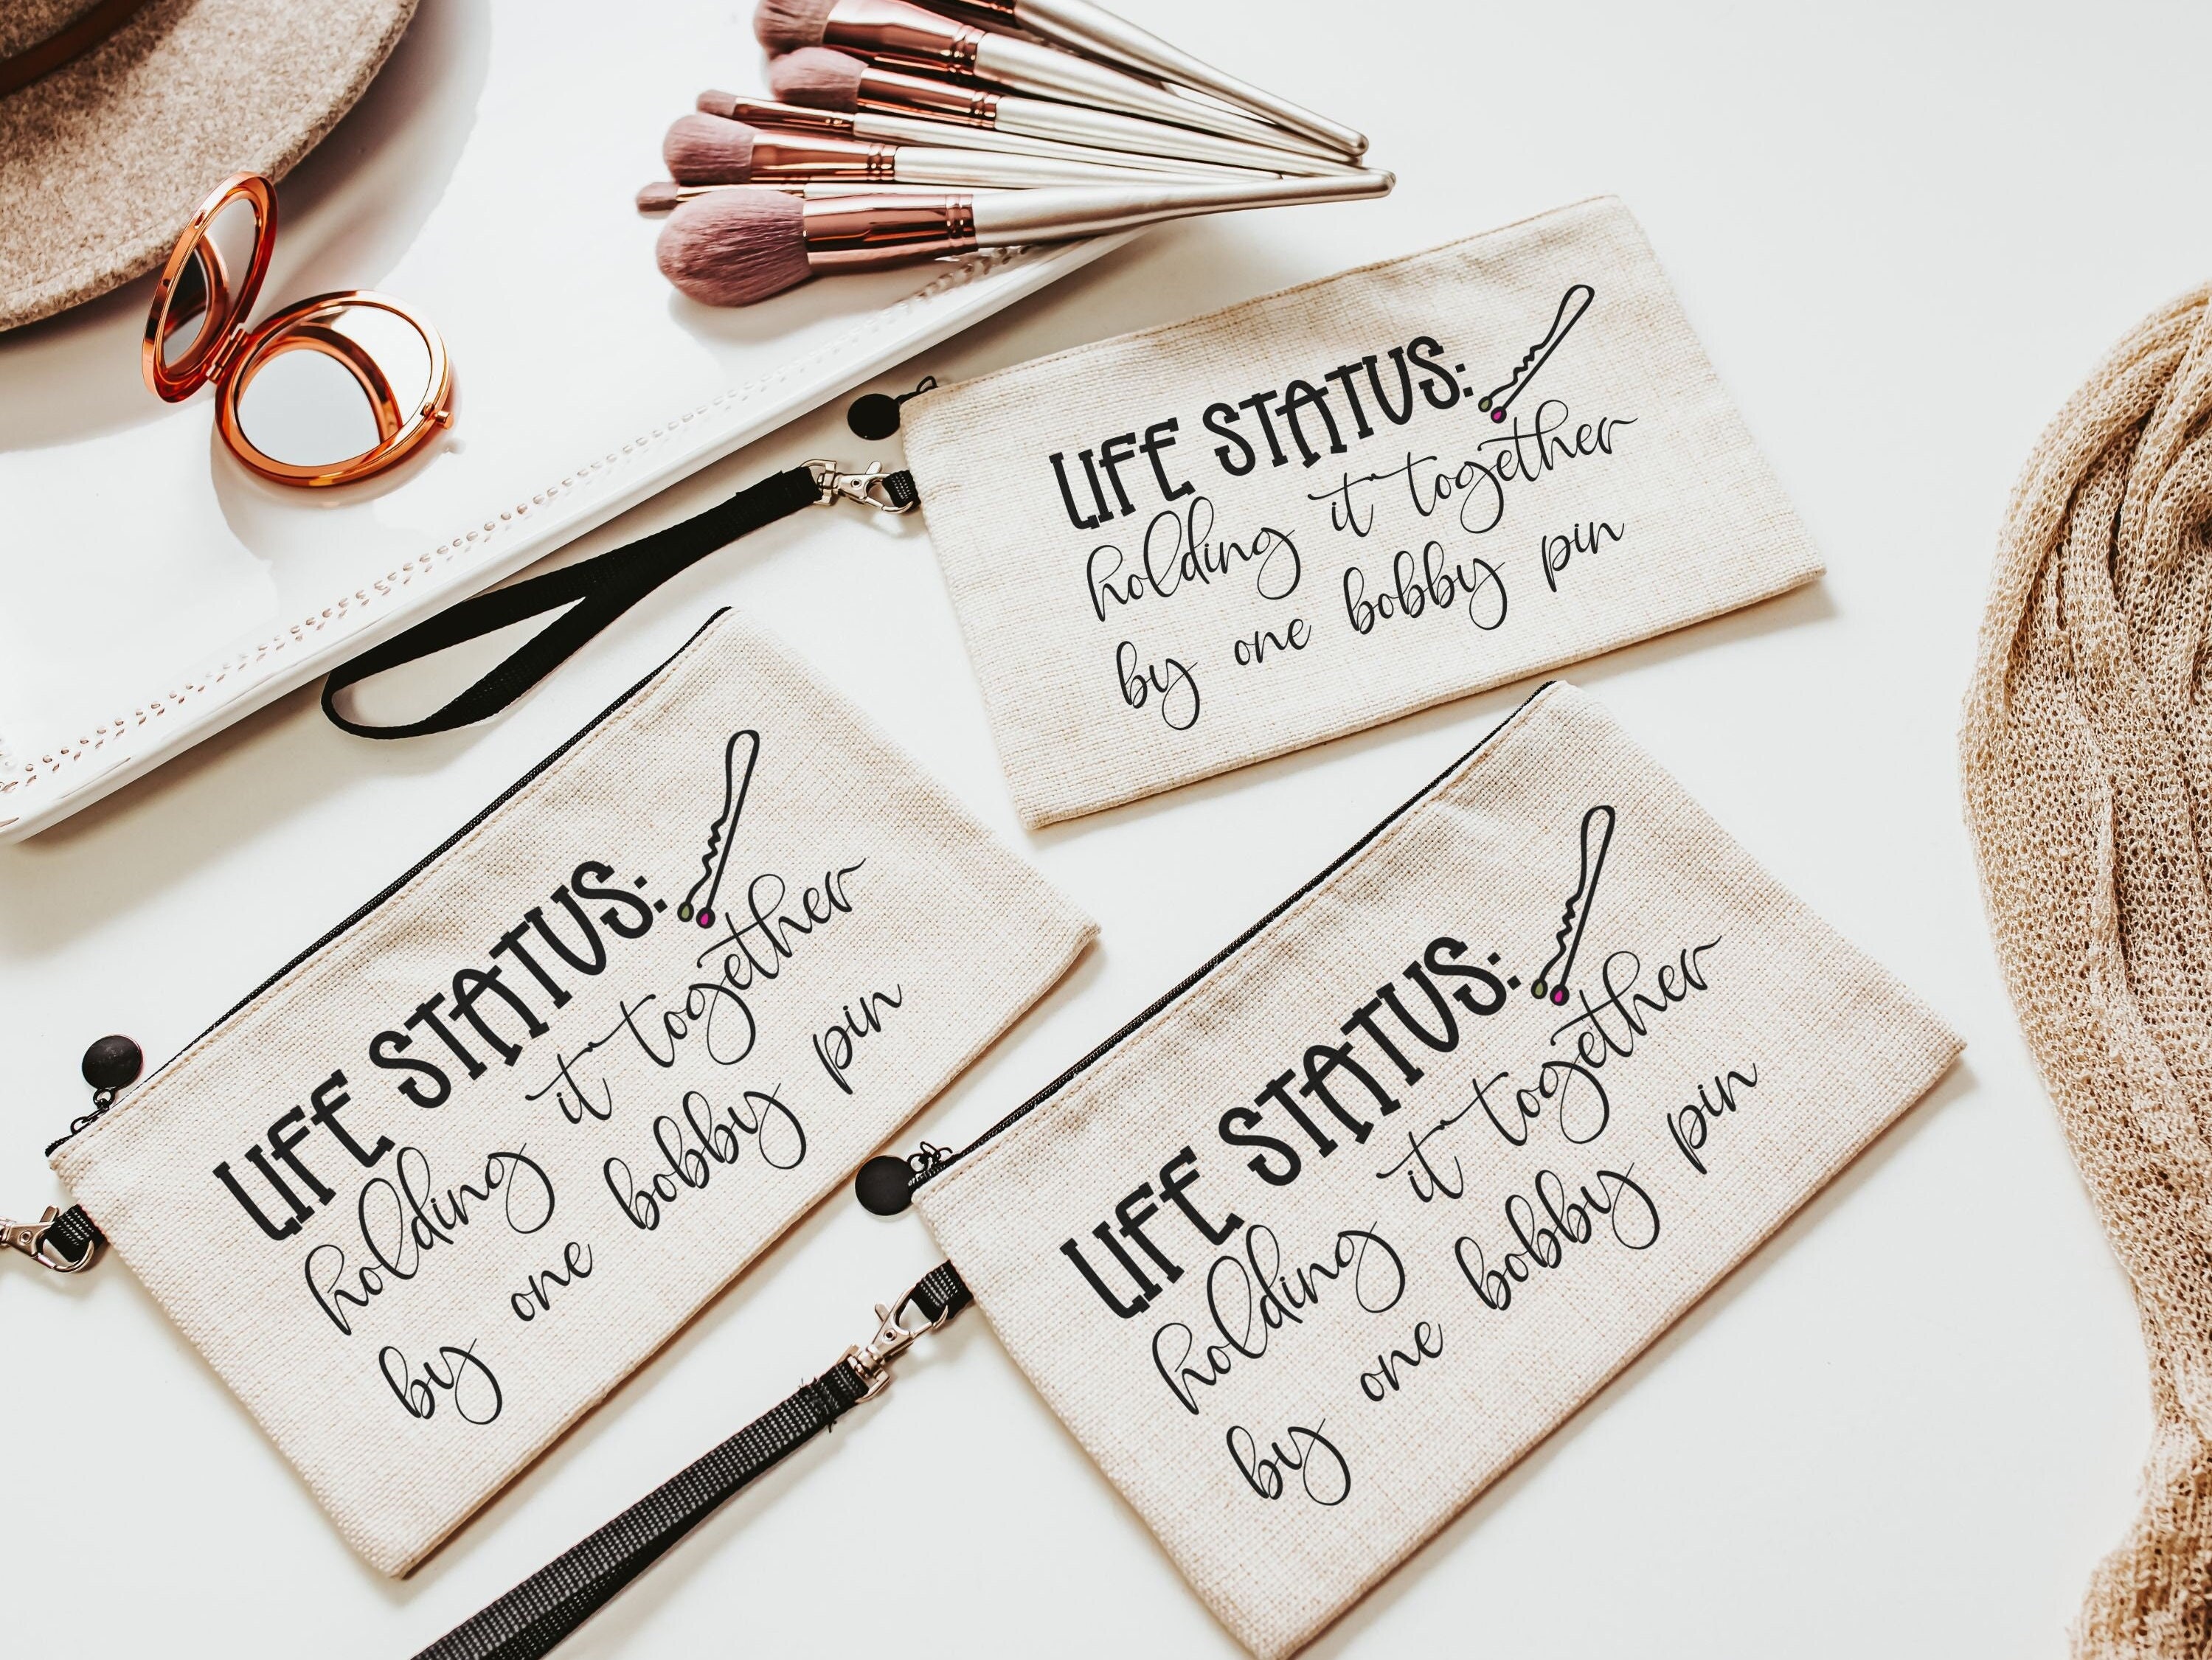 LIFE STATUS:
holding it together
by one bobby pin
LIFE STATUS:
holding it together
by one bobby pin
LIFE STATUS:
holding it together
by one bobby pin